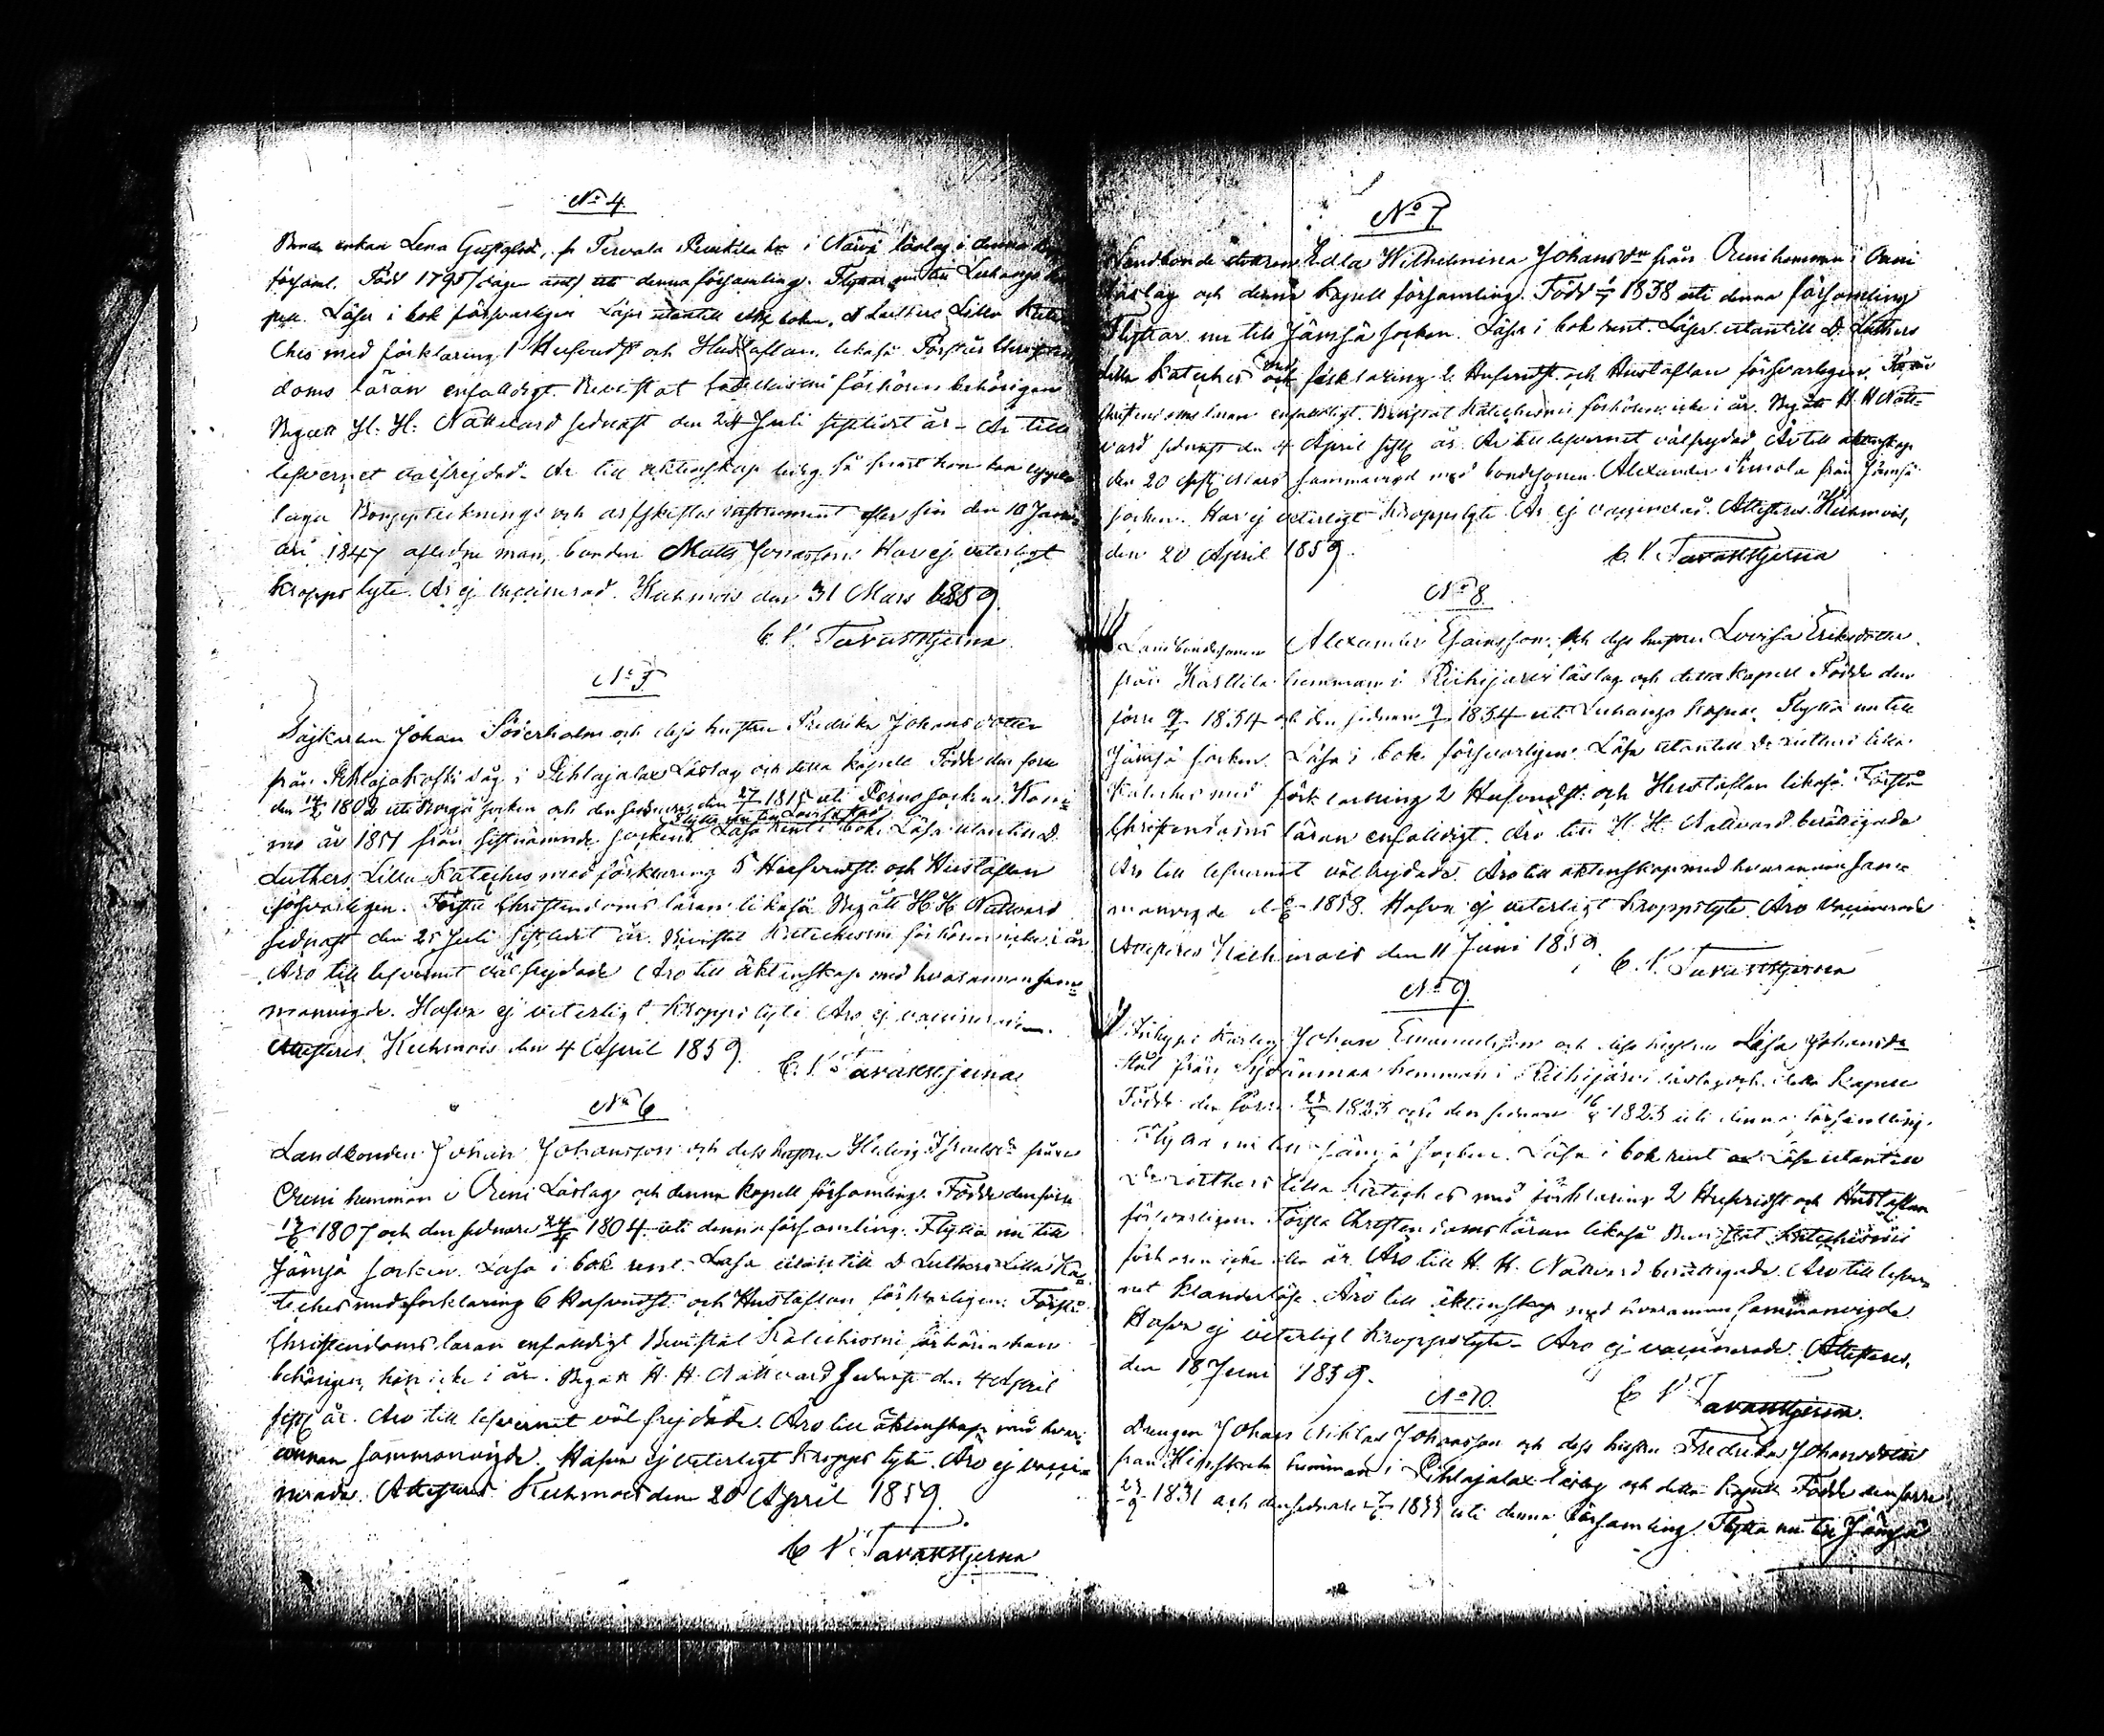 No 4.
Bonde enkan Lena Gustafsd:, fr. Tervala i Närvä läslag i denna
församl. Född 1795 (dagen uti denna församling. Flyttar nu till Luhango
pell. Läser i bok försvarligen Läser utantill D Luthers Lilla Kate-
ches med förklaring 1 Hufvudst och Hustaflan, likaså Förstår Christen
doms läran enfalldigt Bevistat Catechismi förhören behörigen
Begått H. H. Nattvard sednast den 24 Juli sistlidet år - Är till
lefvernet välfrejdad. Är till äktenskap ledig så snart hon kan uppte
laga Bouppteckninge och arfskiftes instrument efter sin den 10 Janu-
ari 1847 aflidne man, bonden Matts Jonasson. Har ej veterligt
kroppslyte. Är ej vaccinerad. Kuhmois den 31 Mars 1859.
C. V. Tavaststjerna
No 5
Sågkarlen Johan Söderholm och dess hustru Fredrika Johansdotter
från såg i Pihlajalax Läslag och detta kapell Född den förre
den 1802 uti Borgå socken och den sednare den 27 1815 uti Perno socken. Kom-
Flytta nu till Lovisa stad
mo år 1851 från sistnämnde socken. Läsa rent i bok. Läsa utantill D.
Luthers Lilla Kateches med förklaring 5 Hufvudst. och Hustaflan
försvarligen. Förstå Christendoms läran likaså. Begått H. H. Nattvard
sednast den 25 Juli sistlidet år. Bevistat Katechismi förhören icke i år
Äro till lefvernet välfrejdade Äro till äktenskap med hvarannan sam-
manvigde. Hafva ej veterligt kroppslyte. Äro ej vaccinerade.
Attesteres. Kuhmois den 4 April 1859.
C. V. Tavaststjerna
No 6
Landbonden Johan Johansson och dess hustru Hedvig från
Arvi hemman i Arvi Läslag och denna kapell församling. Född den förre
17/6 1807 och den sednare 24 1804 uti denna församling. Flytta nu till
Jämsä socken. Läsa i bok rent. Läsa utantill D Luthers Lilla Ka-
teches med förklaring 6 Hufvudst. och Hustaflan försvarligen. Förstå
Christendoms läran enfalldigt Bevistat Katechismi förhören han
behörigen, hon icke i år. Begått H. H. Nattvard sednast den 4 April
sistl. år. Äro till lefvernet välfrejdade. Äro till äktenskap med hvar-
annan sammanvigde. Hafva ej veterligt kropps lyte. Äro ej vacci-
nerade. Attesteres Kuhmois den 20 April 1859.
C. V. Tavaststjerna
No 7
Landbonde dottren Edla Wilhelmina Johansdr från Arvi hemman i Arvi
läslag och denna kapell församling. Född 1838 uti denna församling
Flyttar nu till Jämsä socken. Läser i bok rent. Läser utantill D. Luthers
lilla Kateches med förklaring 2 Hufvudst. och Hustaflan försvarligen. Förstår
Christendoms läran enfalldigt. Bevistat Katechismi förhören icke i år. Begått H. H. Natt-
vard sednast den 4 April sistl. år. Är till lefvernet välfrejdad. Är till äktenskap
den 20 sistl. Mars sammanvigd med bondesonen Alexander från Jämsä
socken. Har ej veterligt kroppslyte. Är ej vaccinerad. Attesteres. Kuhmois,
den 20 April 1859.
C. V. Tavaststjerna
No 8.
Landbondesonen Alexander Esaiasson och dess hustru Lovisa Eriksdotter
från Karttila hemman i Riihijärvi läslag och detta kapell Född den
förre 1834 och den sednare 1834 uti Luhango kapell. Flytta nu till
Jämsä socken. Läsa i bok försvarligen. Läsa utantill D. Luthers lilla
Kateches med förklaring 2 Hufvudst. och Hustaflan likaså. Förstå
Christendoms läran enfalldigt. Äro till H. H. Nattvard berättigade
Äro till lefvernet välfrejdade. Äro till äktenskap med hvarannan sam-
manvigde 1858. Hafva ej veterligt kroppslyte. Äro vaccinerade
Attesteres Kuhmois den 11 Juni 1859.
C. V. Tavaststjerna
No 9.
Johan Emanuelsson och dess hustru Lisa Johansdr
från Sydänmaa hemman i Riihijärvi läslag och detta kapell
Född den förre 1823 och den sednare 16 1823 uti denna församling.
Flytta nu till Jämsä socken. Läsa i bok rent Läsa utantill
D. Luthers lilla Kateches med förklaring 2 Hufvudst och Hustaflan
försvarligen. Förstå Christendoms läran likaså Bevistat Katechismi
förhören icke i år. Äro till H. H. Nattvard berättigade. Äro till lefver-
net klanderlöse. Äro till äktenskap med hvarannan sammanvigde.
Hafva ej veterligt kroppslyte. Äro ej vaccinerade. Attesteres.
den 18 Juni 1859.
C V Tavaststjerna.
No 10.
Drengen Johan Niklas Johansson och dess hustru Fredrika Johansdotter
från hemman i Pihlajalax läslag och detta kapell. Född den förre
27/9 1831 och den sednare 1835 uti denna församling. Flytta nu till Jämsä